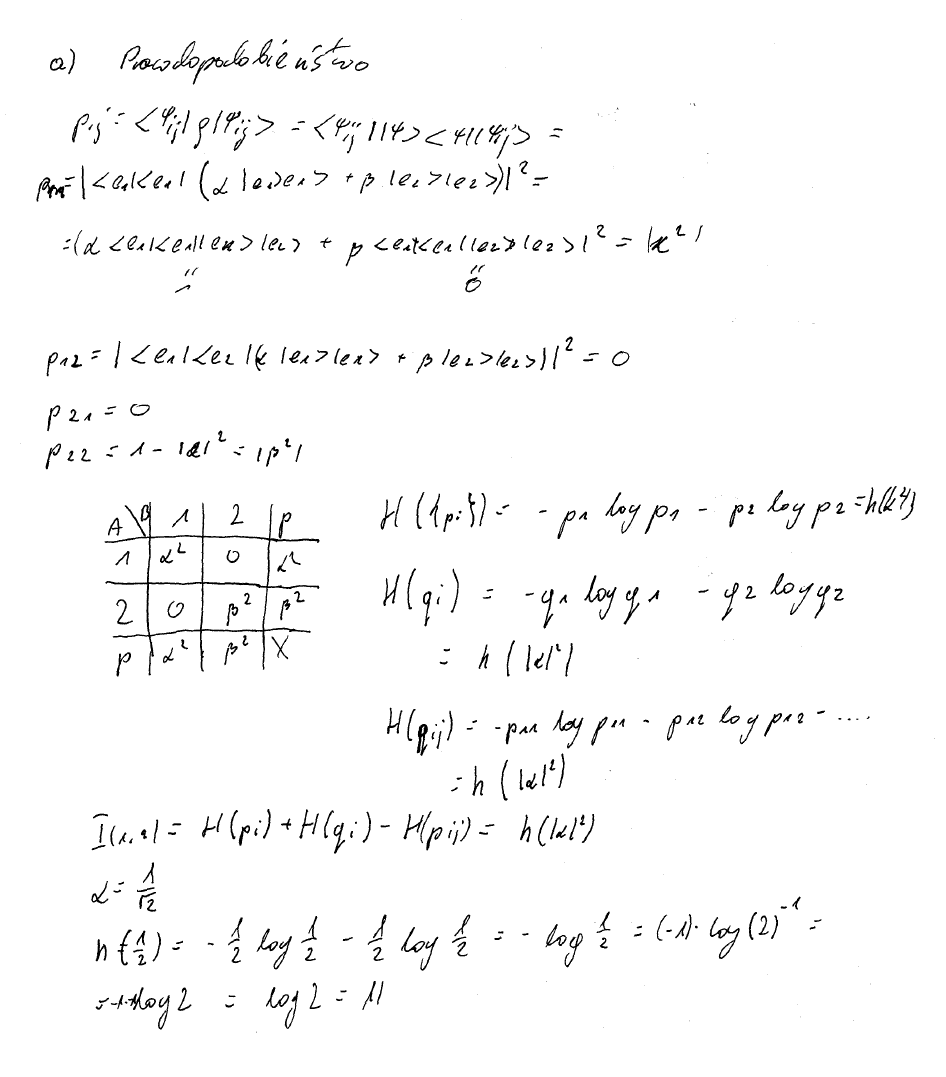 a) Prawdopodobieństwo
p_ij = <ψ_ij|ρ|ψ_ij> = <ψ_ij||ψ><ψ||ψ_ij> =
p_11 = |<e_1|<e_1| (α |e_1>|e_1> + β |e_2>|e_2>)|² =
= |α <e_1|<e_1||e_1>|e_2> + β <e_1|<e_1||e_2>|e_2>|² = |α²|
" "
1 0
p_12 = |<e_1|<e_2|(α |e_1>|e_1> + β|e_2>|e_2>)|² = 0
p_21 = 0
p_22 = 1 - |α|² = |β²|
A\B 1 2 p
1 α² 0 α²
2 0 β² β²
p α² β² X
H({p_i}) = - p_1 log p_1 - p_2 log p_2 =
H(q_i) = - q_1 log q_1 - q_2 log q_2
= h(|α|²)
H(p_ij) = -p_11 log p_11 - p_12 log p_12 - ....
= h(|α|²)
= H(p_i) + H(q_i) - H(p_ij) = h(|α|²)
α = 1/√2
h(1/2) = - 1/2 log 1/2 - 1/2 log 1/2 = - log 1/2 = (-1)· log (2)^-1 =
log 2 = log 2 = 1